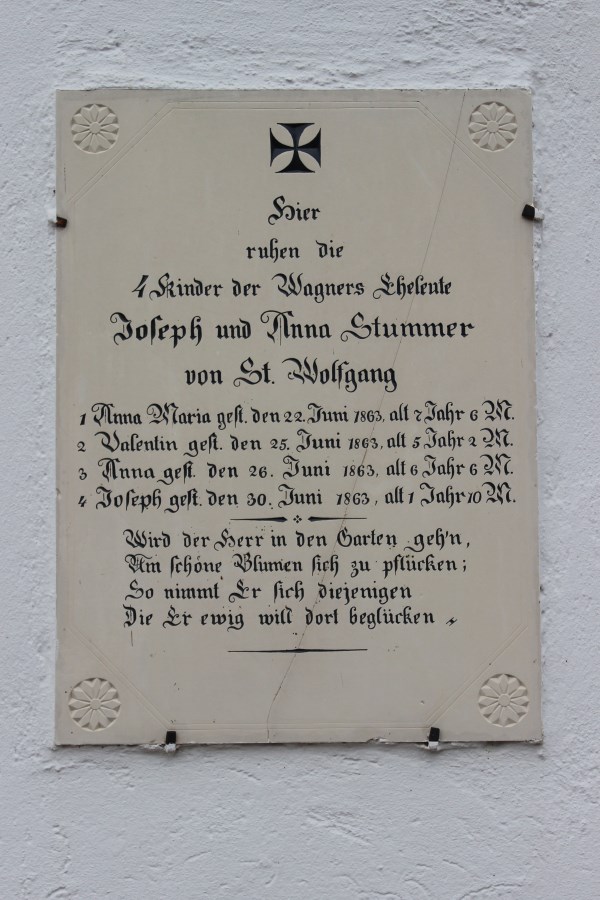 Hier
ruhen die
4 Kinder der Wagners Eheleute
Joseph und Anna Stummer
von St. Wolfgang
1 Anna Maria gest. den 22. Juni 1863, alt 7 Jahr 6 M.
2 Valentin gest. den 25. Juni 1863, alt 5 Jahr 2 M.
3 Anna gest. den 26. Juni 1863, alt 6 Jahr 6 M.
4 Joseph gest. den 30. Juni 1863, alt 1 Jahr 10 M.
Wird der Herr in den Garten geh'n,
Um schöne Blumen sich zu pflücken;
So nimmt Er sich diejenigen
Die Er ewig will dort beglücken.